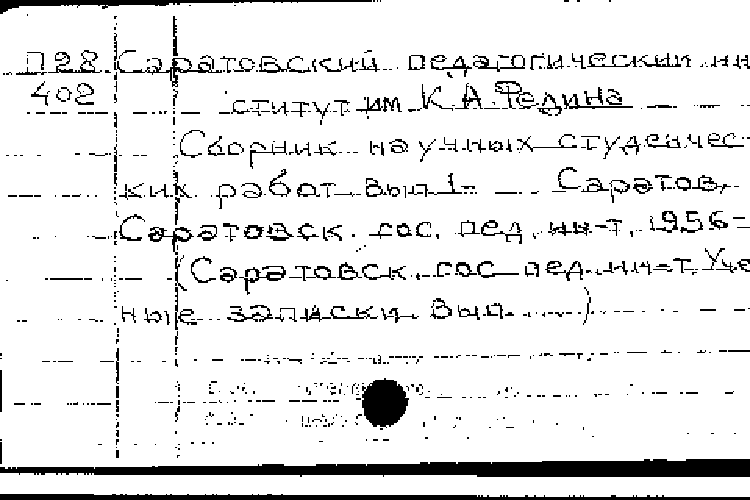 П28 Саратовский педагогический ин
402 ститут им К.А.Федина
Сборник научных студенчес-
ких работ. Вып.1- Саратов,
Саратовск. гос. пед. ин-т, 1956-
(Саратовск. гос пед. ин-т. Уче
ные записки. Вып. )